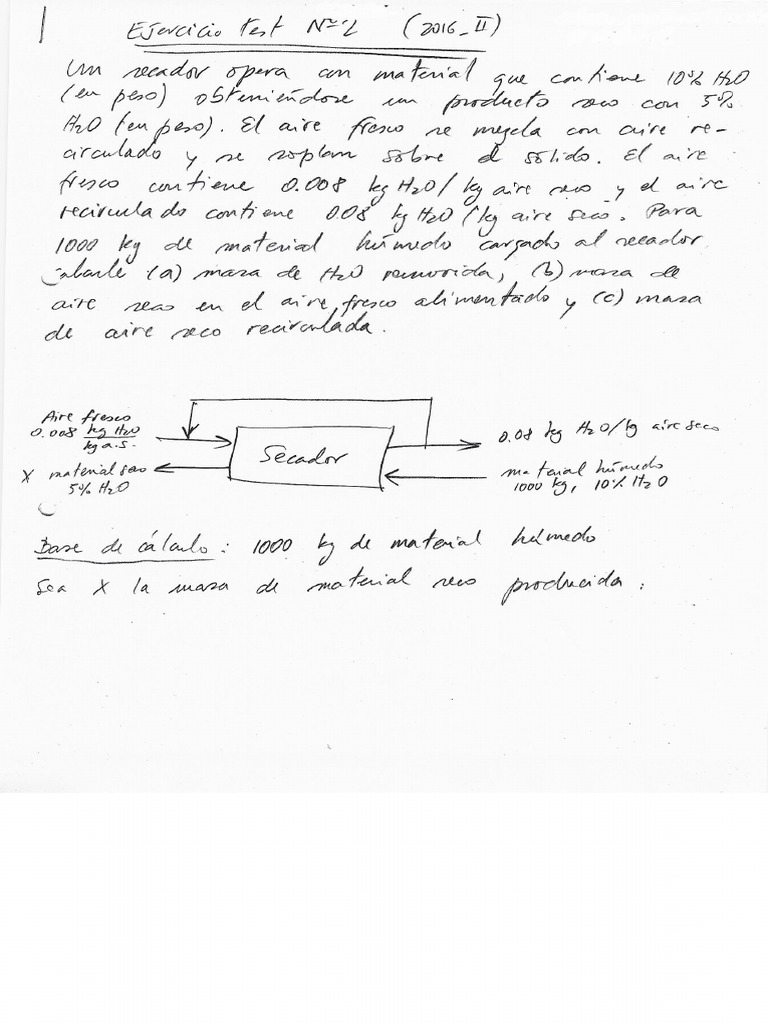 Ejercicio Test Nº 2 (2016_II)
Un secador opera con material que contiene 10% H2O
(en peso) obteniéndose un producto seco con 5%
H2O (en peso). El aire fresco se mezcla con aire re-
circulado y se soplan sobre el sólido. El aire
fresco contiene 0.008 kg H2O/kg aire seco y el aire
recirculado contiene 0.08 kg H2O/kg aire seco. Para
1000 kg de material húmedo cargado al secador,
calcule (a) masa de H2O removida, (b) masa de
aire seco en el aire fresco alimentado y (c) masa
de aire seco recirculada.
Aire fresco
0.008 kg H2O
kg a.s.
X material seco
5% H2O
Secador
0.08 kg H2O/kg aire seco
material húmedo
1000 kg, 10% H2O
Base de cálculo: 1000 kg de material húmedo
Sea X la masa de material seco producida: